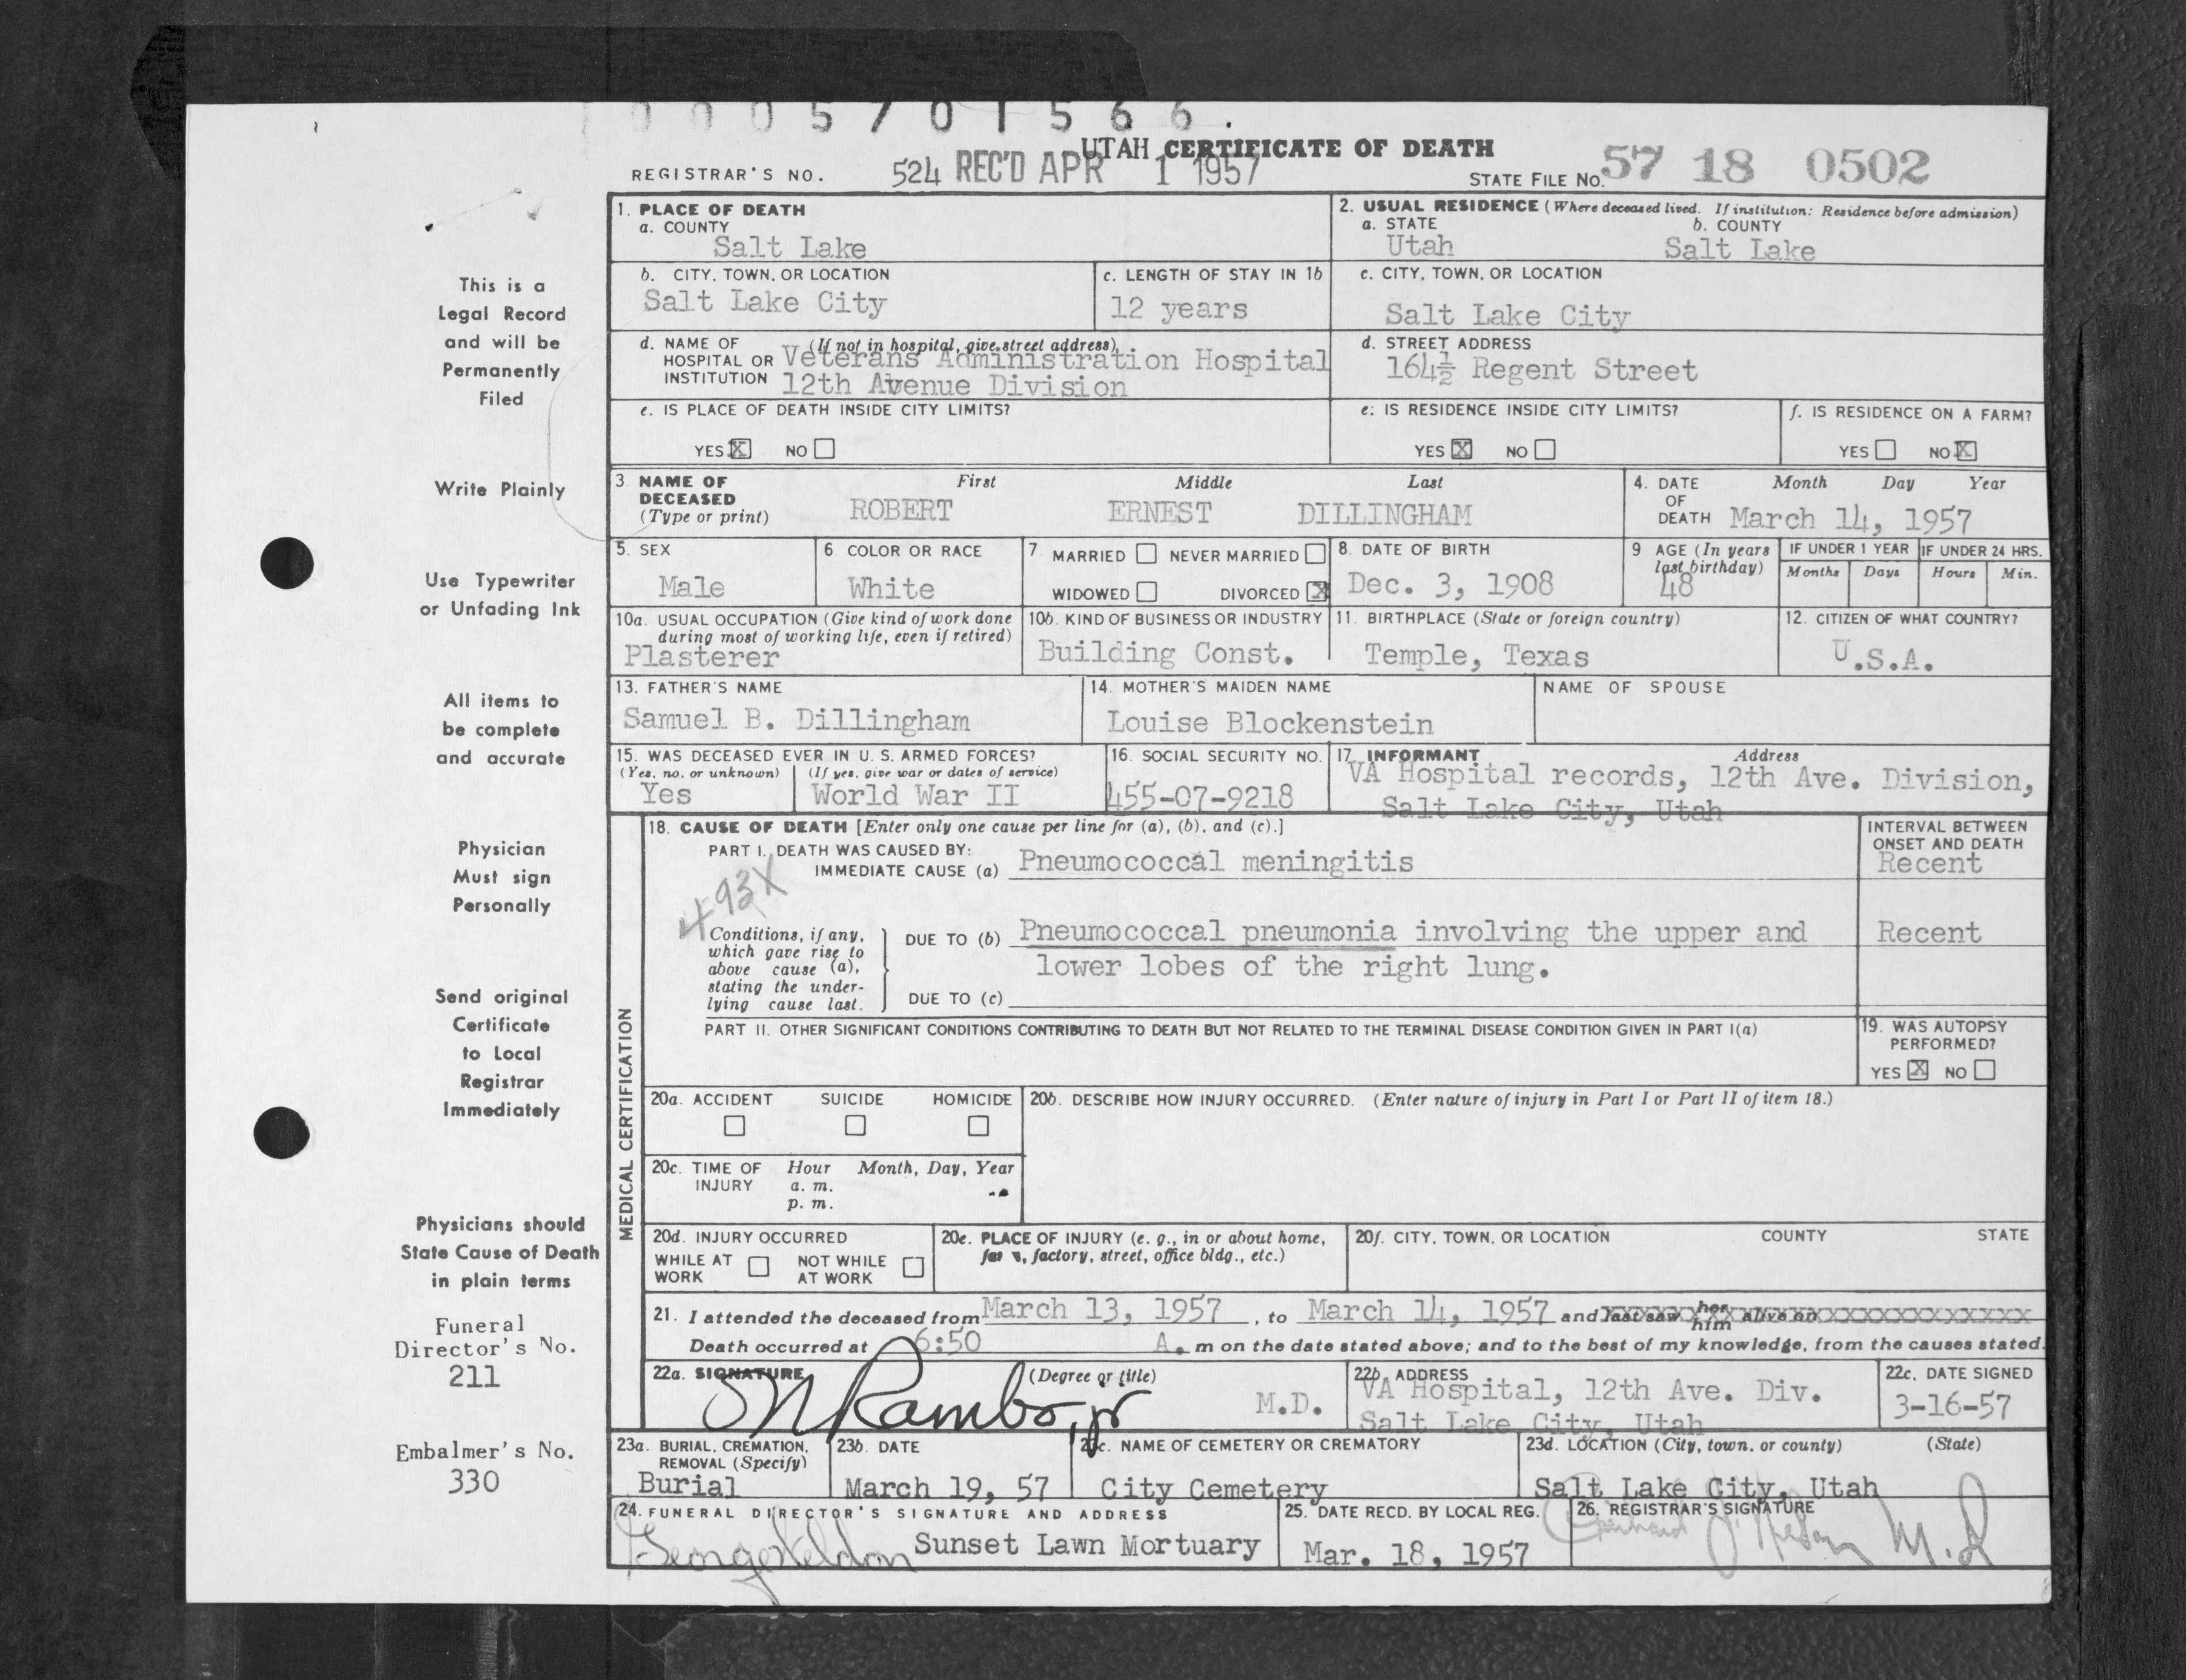 0005701566.
UTAH CERTIFICATE OF DEATH
REGISTRAR'S NO. 524 REC'D APR 1 1957
STATE FILE NO. 57 18 0502
This is a
Legal Record
and will be
Permanently
Filed
Write Plainly
Use Typewriter
or Unfading Ink
All items to
be complete
and accurate
Physician
Must sign
Personally
Send original
Certificate
to Local
Registrar
Immediately
Physicians should
State Cause of Death
in plain terms
Funeral
Director's No.
211
Embalmer's No.
330
1. PLACE OF DEATH
a. COUNTY
Salt Lake
2. USUAL RESIDENCE (Where deceased lived. If institution: Residence before admission)
a. STATE b. COUNTY
Utah Salt Lake
b. CITY, TOWN, OR LOCATION
Salt Lake City
c. LENGTH OF STAY IN 1b
12 years
c. CITY, TOWN, OR LOCATION
Salt Lake City
d. NAME OF (If not in hospital, give street address)
HOSPITAL OR Veterans Administration Hospital
INSTITUTION 12th Avenue Division
d. STREET ADDRESS
164½ Regent Street
e. IS PLACE OF DEATH INSIDE CITY LIMITS?
YES X NO
e. IS RESIDENCE INSIDE CITY LIMITS?
YES X NO
f. IS RESIDENCE ON A FARM?
YES NO X
3. NAME OF DECEASED (Type or print)
First Middle Last
ROBERT ERNEST DILLINGHAM
4. DATE OF DEATH
Month Day Year
March 14, 1957
5. SEX
Male
6. COLOR OR RACE
White
7. MARRIED NEVER MARRIED
WIDOWED DIVORCED X
8. DATE OF BIRTH
Dec. 3, 1908
9 AGE (In years last birthday)
48
IF UNDER 1 YEAR IF UNDER 24 HRS.
Months Days Hours Min.
10a. USUAL OCCUPATION (Give kind of work done
during most of working life, even if retired)
Plasterer
10b. KIND OF BUSINESS OR INDUSTRY
Building Const.
11. BIRTHPLACE (State or foreign country)
Temple, Texas
12. CITIZEN OF WHAT COUNTRY?
U.S.A.
13. FATHER'S NAME
Samuel B. Dillingham
14. MOTHER'S MAIDEN NAME
Louise Blockenstein
NAME OF SPOUSE
15. WAS DECEASED EVER IN U. S. ARMED FORCES?
(Yes, no, or unknown) (If yes, give war or dates of service)
Yes World War II
16. SOCIAL SECURITY NO.
455-07-9218
17. INFORMANT Address
VA Hospital records, 12th Ave. Division,
Salt Lake City, Utah
MEDICAL CERTIFICATION
18. CAUSE OF DEATH [Enter only one cause per line for (a), (b), and (c).]
PART I. DEATH WAS CAUSED BY:
IMMEDIATE CAUSE (a) Pneumococcal meningitis
INTERVAL BETWEEN
ONSET AND DEATH
Recent
493X
Conditions, if any,
which gave rise to
above cause (a),
stating the under-
lying cause last.
DUE TO (b) Pneumococcal pneumonia involving the upper and
lower lobes of the right lung.
Recent
DUE TO (c)
PART II. OTHER SIGNIFICANT CONDITIONS CONTRIBUTING TO DEATH BUT NOT RELATED TO THE TERMINAL DISEASE CONDITION GIVEN IN PART I(a)
19. WAS AUTOPSY
PERFORMED?
YES X NO
20a. ACCIDENT SUICIDE HOMICIDE
20b. DESCRIBE HOW INJURY OCCURRED. (Enter nature of injury in Part I or Part II of item 18.)
20c. TIME OF INJURY
Hour Month, Day, Year
a. m.
p. m.
20d. INJURY OCCURRED
WHILE AT WORK NOT WHILE AT WORK
20e. PLACE OF INJURY (e. g., in or about home,
farm, factory, street, office bldg., etc.)
20f. CITY, TOWN, OR LOCATION COUNTY STATE
21. I attended the deceased from March 13, 1957, to March 14, 1957 and last saw her him alive on
Death occurred at 6:50 A. m on the date stated above; and to the best of my knowledge, from the causes stated.
22a. SIGNATURE (Degree or title)
Rambo, jr M.D.
22b. ADDRESS
VA Hospital, 12th Ave. Div.
Salt Lake City, Utah
22c. DATE SIGNED
3-16-57
23a. BURIAL, CREMATION,
REMOVAL (Specify)
Burial
23b. DATE
March 19, 57
23c. NAME OF CEMETERY OR CREMATORY
City Cemetery
23d. LOCATION (City, town, or county) (State)
Salt Lake City, Utah
24. FUNERAL DIRECTOR'S SIGNATURE AND ADDRESS
Sunset Lawn Mortuary
25. DATE RECD. BY LOCAL REG.
Mar. 18, 1957
26. REGISTRAR'S SIGNATURE
M.D